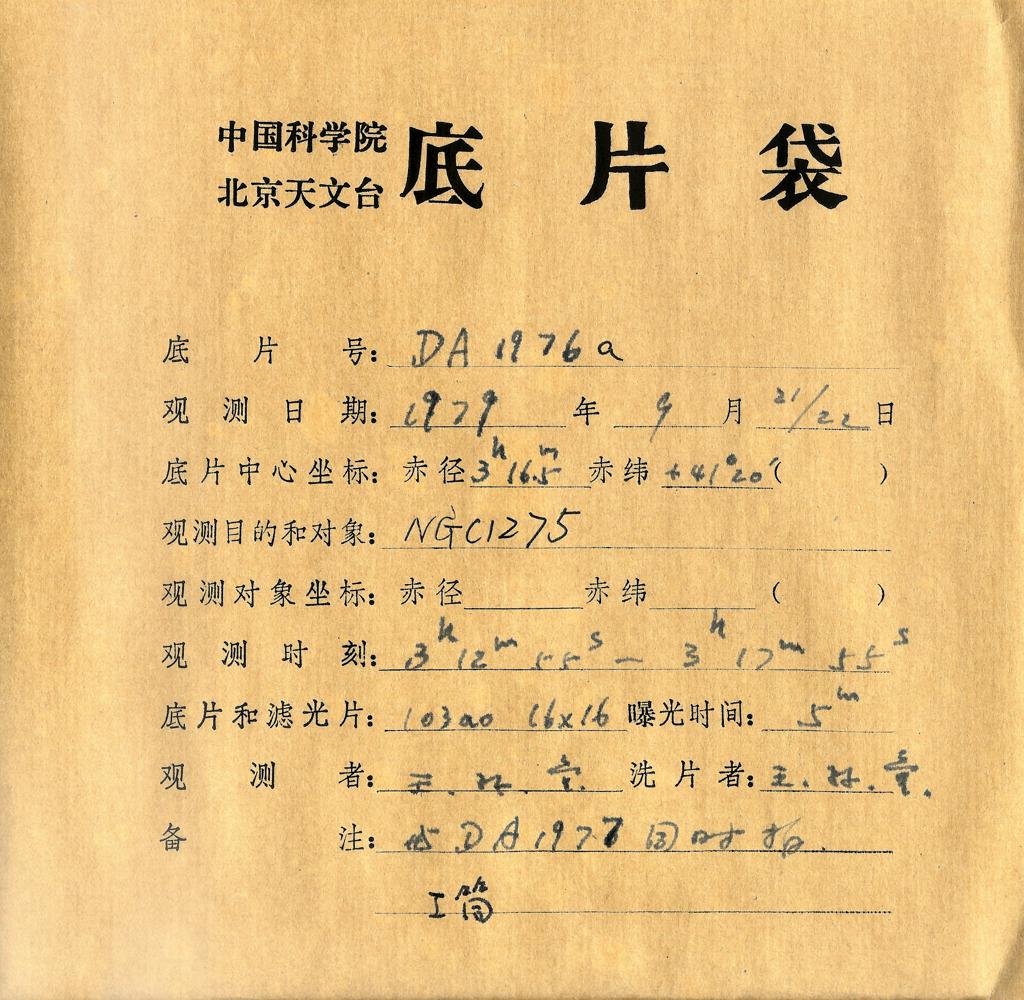 中国科学院
北京天文台
底片袋
底片号: DA 1976a
观测日期: 1979 年 9 月 21/22 日
底片中心坐标: 赤径 3h 16.5m 赤纬 +41°20′( )
观测目的和对象: NGC1275
观测对象坐标: 赤径 赤纬 ( )
观测时刻: 3h 12m 55s — 3h 17m 55s
底片和滤光片: 103a0 16x16 曝光时间: 5m
观测者: 王. 林. 洗片者: 王. 林.
备注: 与 DA 1977 同时拍.
I筒